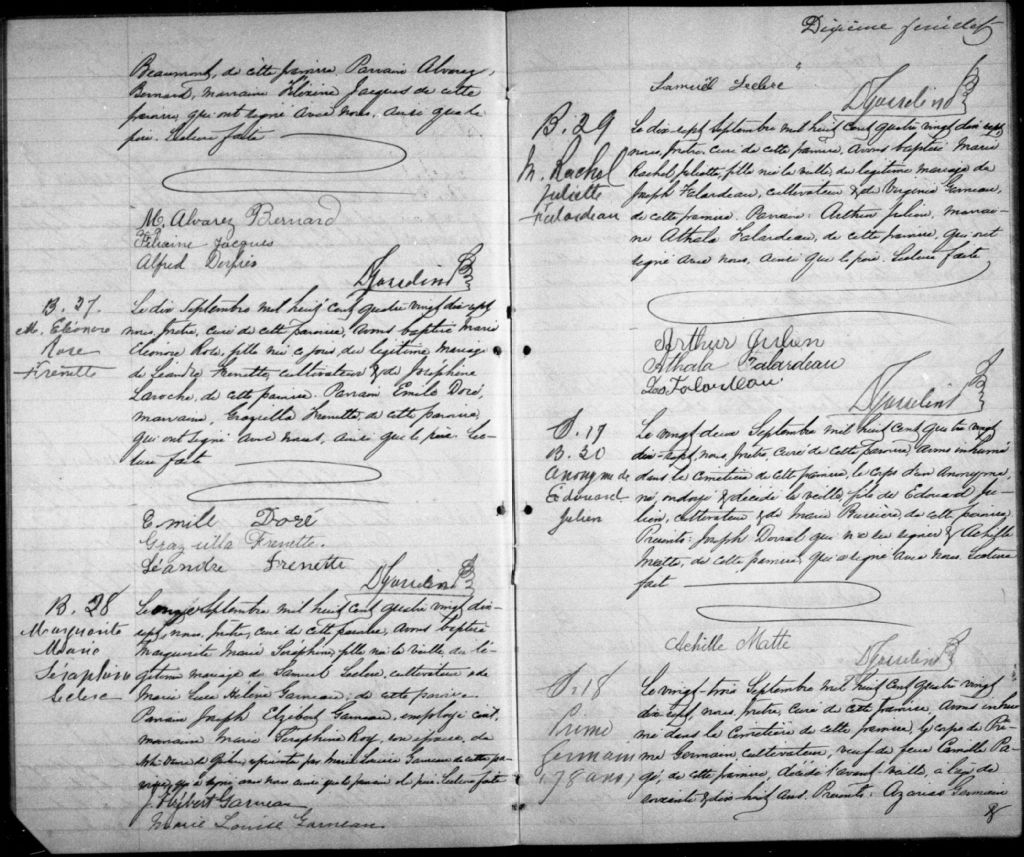 Beaumont, de cette paroisse, Parrain Alvarez
Bernard, marraine Jacques de cette
paroisse, qui ont signé avec nous, ainsi que le
père. Lecture faite
M. Alvarez Bernard
Jacques
Alfred
DGosselin Ptre
B. 27.
M. Eléonore
Rose
Frenette
Le dix Septembre mil huit cent quatre vingt dix-sept,
nous, prêtre, curé de cette paroisse, avons baptisé Marie
Eléonore Rose, fille née ce jour du légitime mariage
de Léandre Frenette, cultivateur & de Joséphine
Laroche, de cette paroisse. Parrain Emile Doré,
marraine, Graziella Frenette, de cette paroisse,
qui ont signé avec nous, ainsi que le père. Lec-
ture faite
Emill Doré
Grazuilla Frenette.
Léandre Frenette
DGosselin Ptre
B. 28
Marguerite
Marie
Séraphine
Leclerc
Le onze Septembre mil huit cent quatre vingt dix-
sept, nous, prêtre, curé de cette paroisse, avons baptisé
Marguerite Marie Séraphine, fille née la veille du lé-
gitime mariage de Samuel Leclerc, cultivateur & de
Marie Luce Hélène Garneau, de cette paroisse.
Parrain Joseph Elzébert Garneau, employé civil,
marraine Marie Séraphine Roy, son épouse, de
de Québec, représentée par Marie Louise Garneau de cette pa-
roisse, qui a signé avec nous ainsi que le parrain & le père. Lecture faite
J. Elzébert Garneau
Marie Louise Garneau
Dixième feuillet
Samuël Leclerc
DGosselin Ptre
B. 29
M. Rachel
Juliette
Falardeau
Le dix-sept Septembre mil huit cent quatre vingt dix-sept,
nous, prêtre, curé de cette paroisse, avons baptisé Marie
Rachel Juliette, fille née la veille, du légitime mariage de
Joseph Falardeau, cultivateur & de Virginie Garneau,
de cette paroisse. Parrain: Arthur Julien, marrai-
ne Athala Falardeau, de cette paroisse, qui ont
signé avec nous, ainsi que le père. Lecture faite
Arthur Julien
Athala Falardeau
Jos Falardeau
DGosselin Ptre
S. 17
B. 30
Anonyme de
Edouard
Julien
Le vingt deux Septembre mil huit cent quatre vingt
dix-sept, nous, prêtre, curé de cette paroisse, avons inhumé
dans le cimetière de cette paroisse, le corps d'un Anonyme,
né, ondoyé & décédé la veille, fils de Edouard Ju-
lien, cultivateur & de Marie Bussière, de cette paroisse.
Présents: Joseph Dorval qui n'a su signer & Achille
Matte, de cette paroisse, qui a signé avec nous. Lecture
faite
Achille Matte
DGosselin Ptre
S. 18
Prime
Germain
(78 ans)
Le vingt-trois Septembre mil huit cent quatre vingt
dix-sept, nous, prêtre, curé de cette paroisse, avons inhu-
mé dans le Cimetière de cette paroisse, le corps de Pri-
me Germain, cultivateur, veuf de feue Camille Pa-
gé, de cette paroisse, décédé l'avant-veille, à l'âge de
soixante & dix-huit ans. Présents: Azarias Germain
&